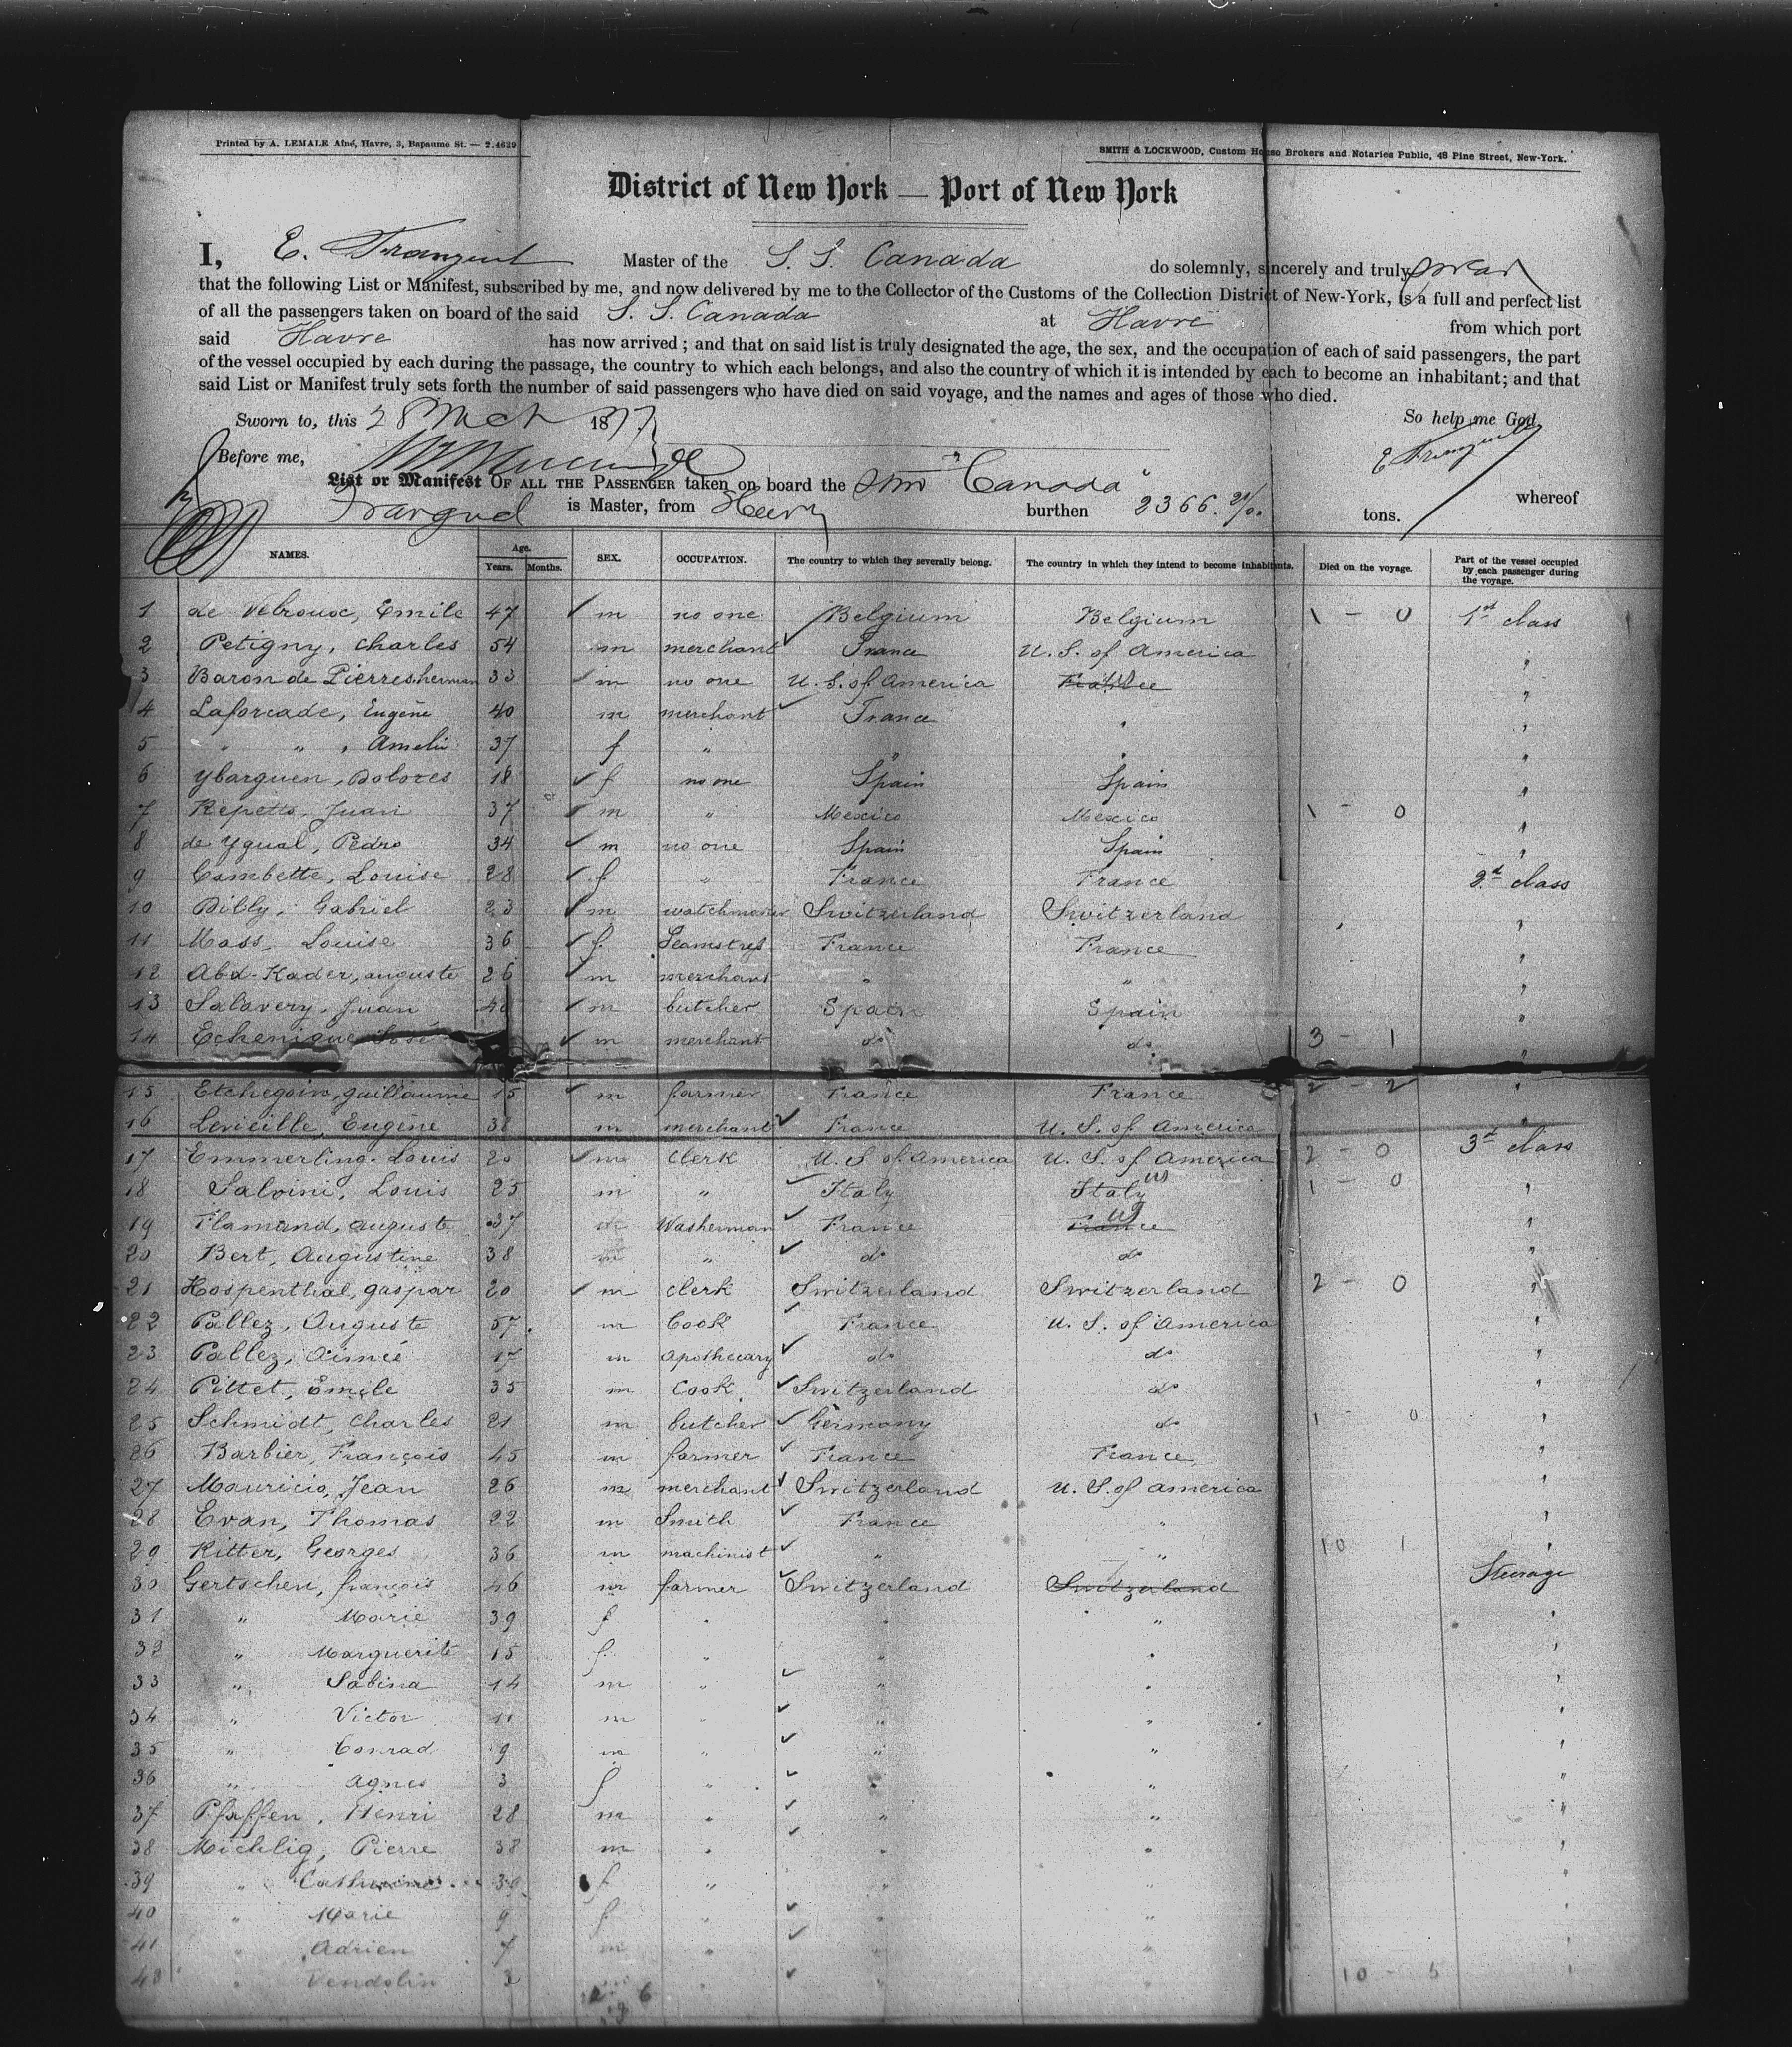 Printed by A. LEMALE Aîné, Havre, 3, Bapaume St. — 2.4639
SMITH & LOCKWOOD, Custom House Brokers and Notaries Public, 48 Pine Street, New-York.
District of New York — Port of New York
I, E. Master of the S. S. Canada do solemnly, sincerely and truly swear
that the following List or Manifest, subscribed by me, and now delivered by me to the Collector of the Customs of the Collection District of New-York, is a full and perfect list
of all the passengers taken on board of the said S. S. Canada at Havre from which port
said Havre has now arrived ; and that on said list is truly designated the age, the sex, and the occupation of each of said passengers, the part
of the vessel occupied by each during the passage, the country to which each belongs, and also the country of which it is intended by each to become an inhabitant; and that
said List or Manifest truly sets forth the number of said passengers who have died on said voyage, and the names and ages of those who died.
Sworn to, this 28 Mch 1877. So help me God,
Before me,
List or Manifest OF ALL THE PASSENGER taken on board the Canada whereof
is Master, from burthen 2366. tons.
NAMES. Age. Years. Months. SEX. OCCUPATION. The country to which they severally belong. The country in which they intend to become inhabitants. Died on the voyage. Part of the vessel occupied by each passenger during the voyage.
1 de Velroux, Emile 47 m no one Belgium Belgium 1 - 0 1st class
2 Petigny, Charles 54 m merchant France U. S. of America "
3 Baron de Pierres, herman 33 m no one U. S. of America France US "
4 Laforcade, Eugène 40 m merchant France " "
5 " " , Amelie 37 f " " " "
6 Ybarguen, Dolores 18 f no one Spain Spain "
7 Repetto, Juan 37 m " Mexico Mexico 1 - 0 "
8 de Ygual, Pedro 34 m no one Spain Spain "
9 Cambette, Louise 28 f " France France 2d class
10 Billy, Gabriel 23 m watchmaker Switzerland Switzerland "
11 Mass, Louise 36 f. Seamstress France France "
12 Abd-Kader, auguste 26 m merchant " " "
13 Salavery, Juan 40 m butcher Spain Spain "
14 Echenique José m merchant do do 3 - 1 "
15 Etchegoin, guillaume 15 m farmer France France 2 - 2 "
16 Levieille, Eugène 38 m merchant France U. S. of America "
17 Emmerling, Louis 20 m Clerk U. S. of America U. S. of America 2 - 0 3d class
18 Salvini, Louis 25 m " Italy Italy US 1 - 0 "
19 Flamand, auguste 37 m Washerman France France US "
20 Bert, Augustine 38 m " do do "
21 Hospenthal, gaspar 20 m Clerk Switzerland Switzerland 2 - 0 "
22 Pallez, Auguste 57 m Cook France U. S. of America "
23 Pallez, Aimée 17 m Apothecary do do "
24 Pittet, Emile 35 m Cook Switzerland do "
25 Schmidt, Charles 21 m butcher Germany do 1 - 0 "
26 Barbier, François 45 m farmer France France "
27 Mauricio, Jean 26 m merchant Switzerland U. S. of America "
28 Evan, Thomas 22 m Smith France " "
29 Ritter, Georges 36 m machinist " " 10 1
30 Gertschen, françois 46 m farmer Switzerland Switzerland Steerage
31 " Marie 39 f " " " "
32 " Marguerite 15 f " " " "
33 " Sabina 14 m " " " "
34 " Victor 11 m " " " "
35 " Conrad 9 m " " " "
36 " Agnes 3 f " " " "
37 Pfaffen, Henri 28 m " " " "
38 Michlig, Pierre 38 m " " " "
39 " Catherine 39 f " " " "
40 " Marie 9 f " " " "
41 " Adrien 7 m " " " "
" Vendolin 3 " " " 10 - 5 "